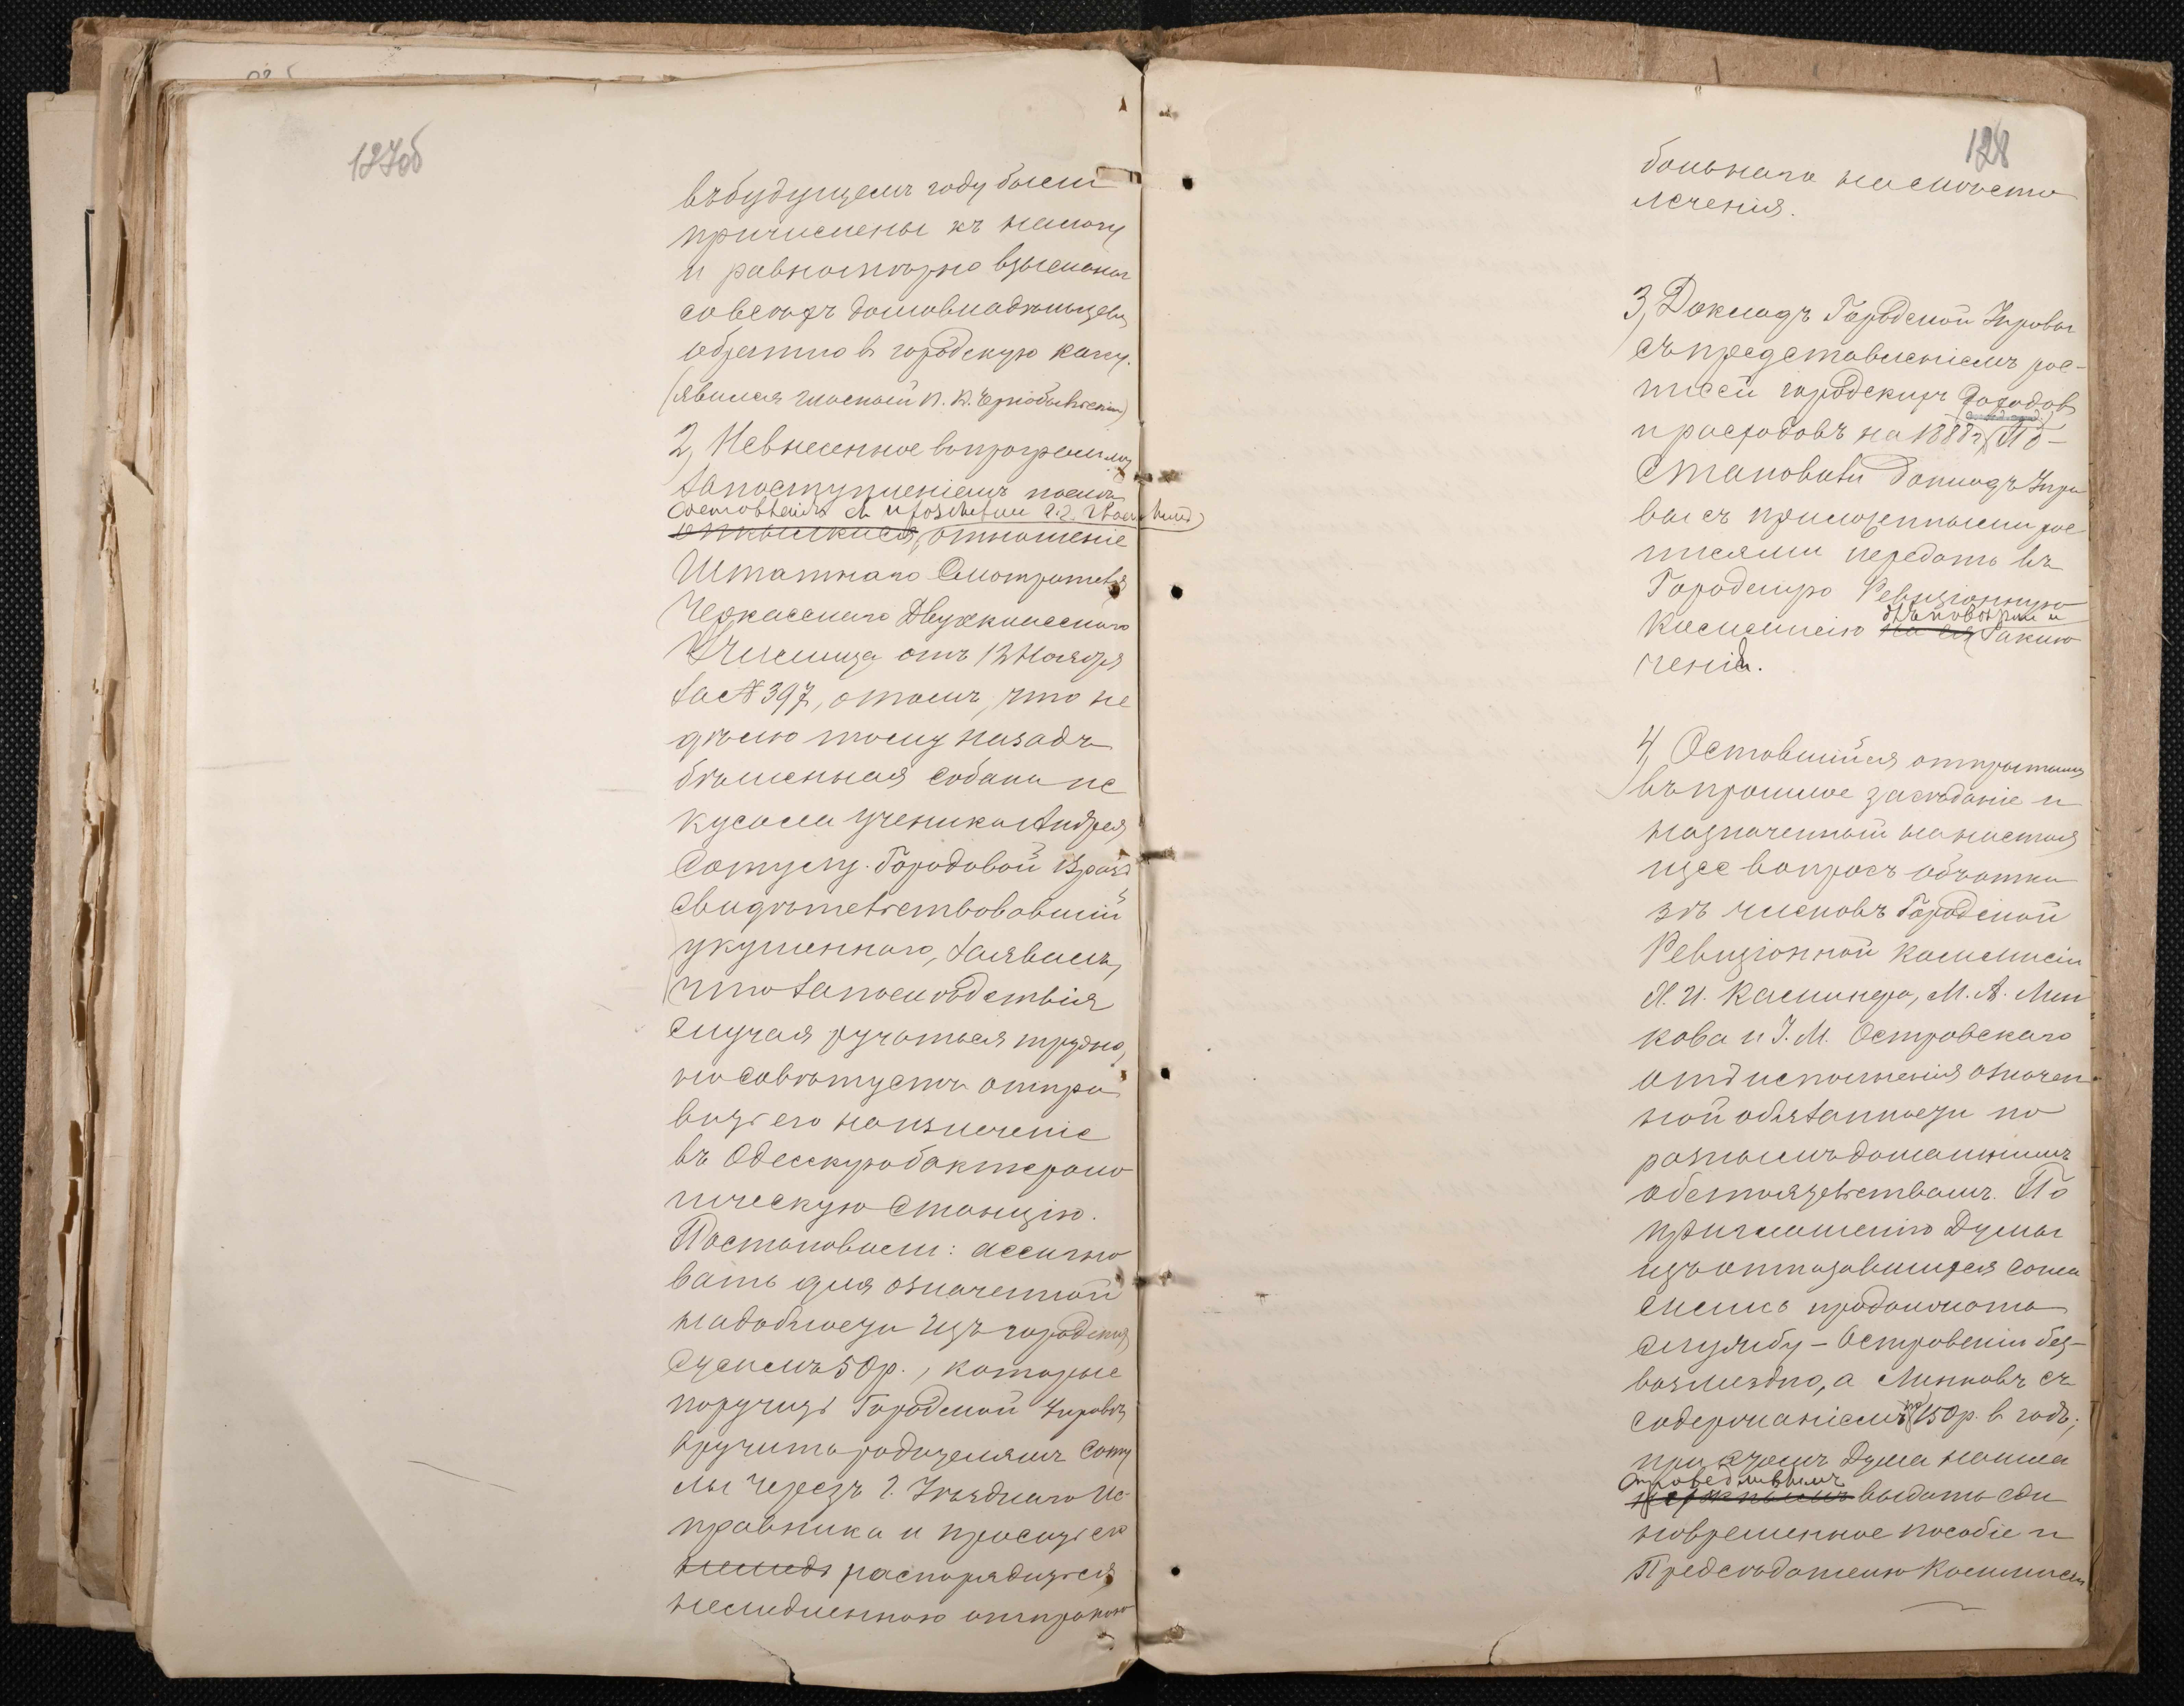 127об
въ будущемъ году были
причислены къ налогу
и равномѣрно взысканы
со всѣхъ домовладѣльцевъ
обратно в городскую касу.
(явился гласный П. В.
2, Невнесенное въ программу
за поступленіемъ послѣ
составленія ея
отношеніе
Штатнаго Смотрителя
Черкасскаго Двухкласснаго
Училища отъ 12 Ноября
за № 397, о томъ, что не
дѣлю тому назадъ
бѣшенная собака ис
кусала ученика Андрея
Сотулу. Городовой Врачъ
свидѣтельствовавшій
укушеннаго, заявилъ,
что за послѣдствія
случая ручаться трудно,
но совѣтуетъ отпра
вить его на излеченіе
въ Одесскую бактероло
гическую Станцію.
Постановили: ассигно
вать для означенной
надобности изъ городскихъ
суммъ 50 р., которые
поручить Городской Управѣ
вручить родителямъ Соту
лы черезъ г. Уѣзднаго Ис
правника и просить его
распорядиться
немедленною отправкою
128
больнаго на мѣсто
леченія.
3, Докладъ Городской Управы
съ представленіемъ рос-
писей городскихъ доходов
и расходовъ на 1888 г. По-
становили Докладъ Упра
вы съ приложенными рос
писями передать въ
Городскую Ревизіонную
для повѣрки и
Коммиссію на ея заклю
ченія.
4, Оставшійся открытымъ
въ прошлое засѣданіе и
назначенный на настоя
щее вопросъ объ отка
зѣ членовъ Городской
Ревизіонной Коммисіи
М. А. Лин
кова и І. М. Островскаго
отъ исполненія означен
ной обязанности по
разнымъ домашнимъ
обстоятельствамъ. По
приглашенію Думы
изъ отказавшихся согла
сились продолжать
службу – Островскій без-
возмездно, а Линковъ съ
содержаніемъ по 150 р. в годъ;
при чемъ Дума нашла
справедливымъ
выдать еди
новременное пособіе и
Предсѣдателю Коммисіи